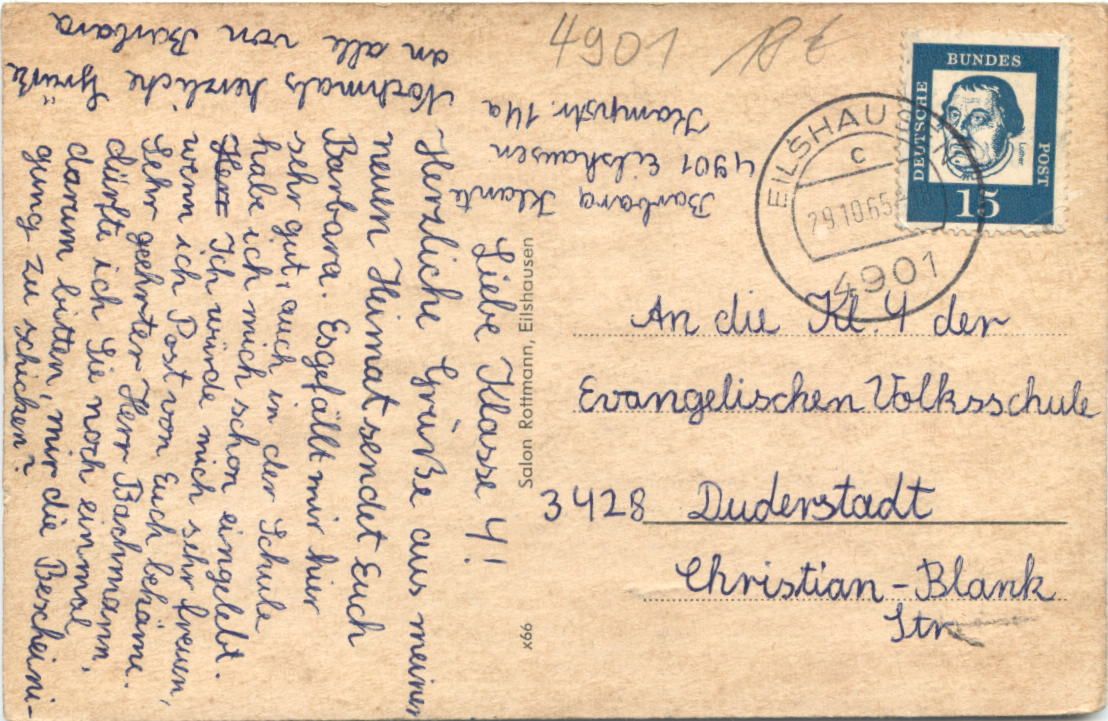 Liebe Klasse 4!
Herzliche Grüße aus meiner
neuen Heimat sendet Euch
Barbara. Es gefällt mir hier
sehr gut, auch in der Schule
habe ich mich schon eingelebt.
Herr Ich würde mich sehr freuen,
wenn ich Post von Euch bekäme.
Sehr geehrter Herr Bachmann,
dürfte ich Sie noch einmal
darum bitten, mir die Bescheini-
gung zu schicken?
Nochmals herzliche Grüße
an alle von Barbara
Barbara Klante
4901 Eilshausen
Kampstr. 14a
Salon Rottmann, Eilshausen
x66
4901
EILSHAUSEN
c
29.10.65
4901
DEUTSCHE
BUNDES
POST
Luther
15
An die Kl. 4 der
Evangelischen Volksschule
3428 Duderstadt
Christian-Blank
Str